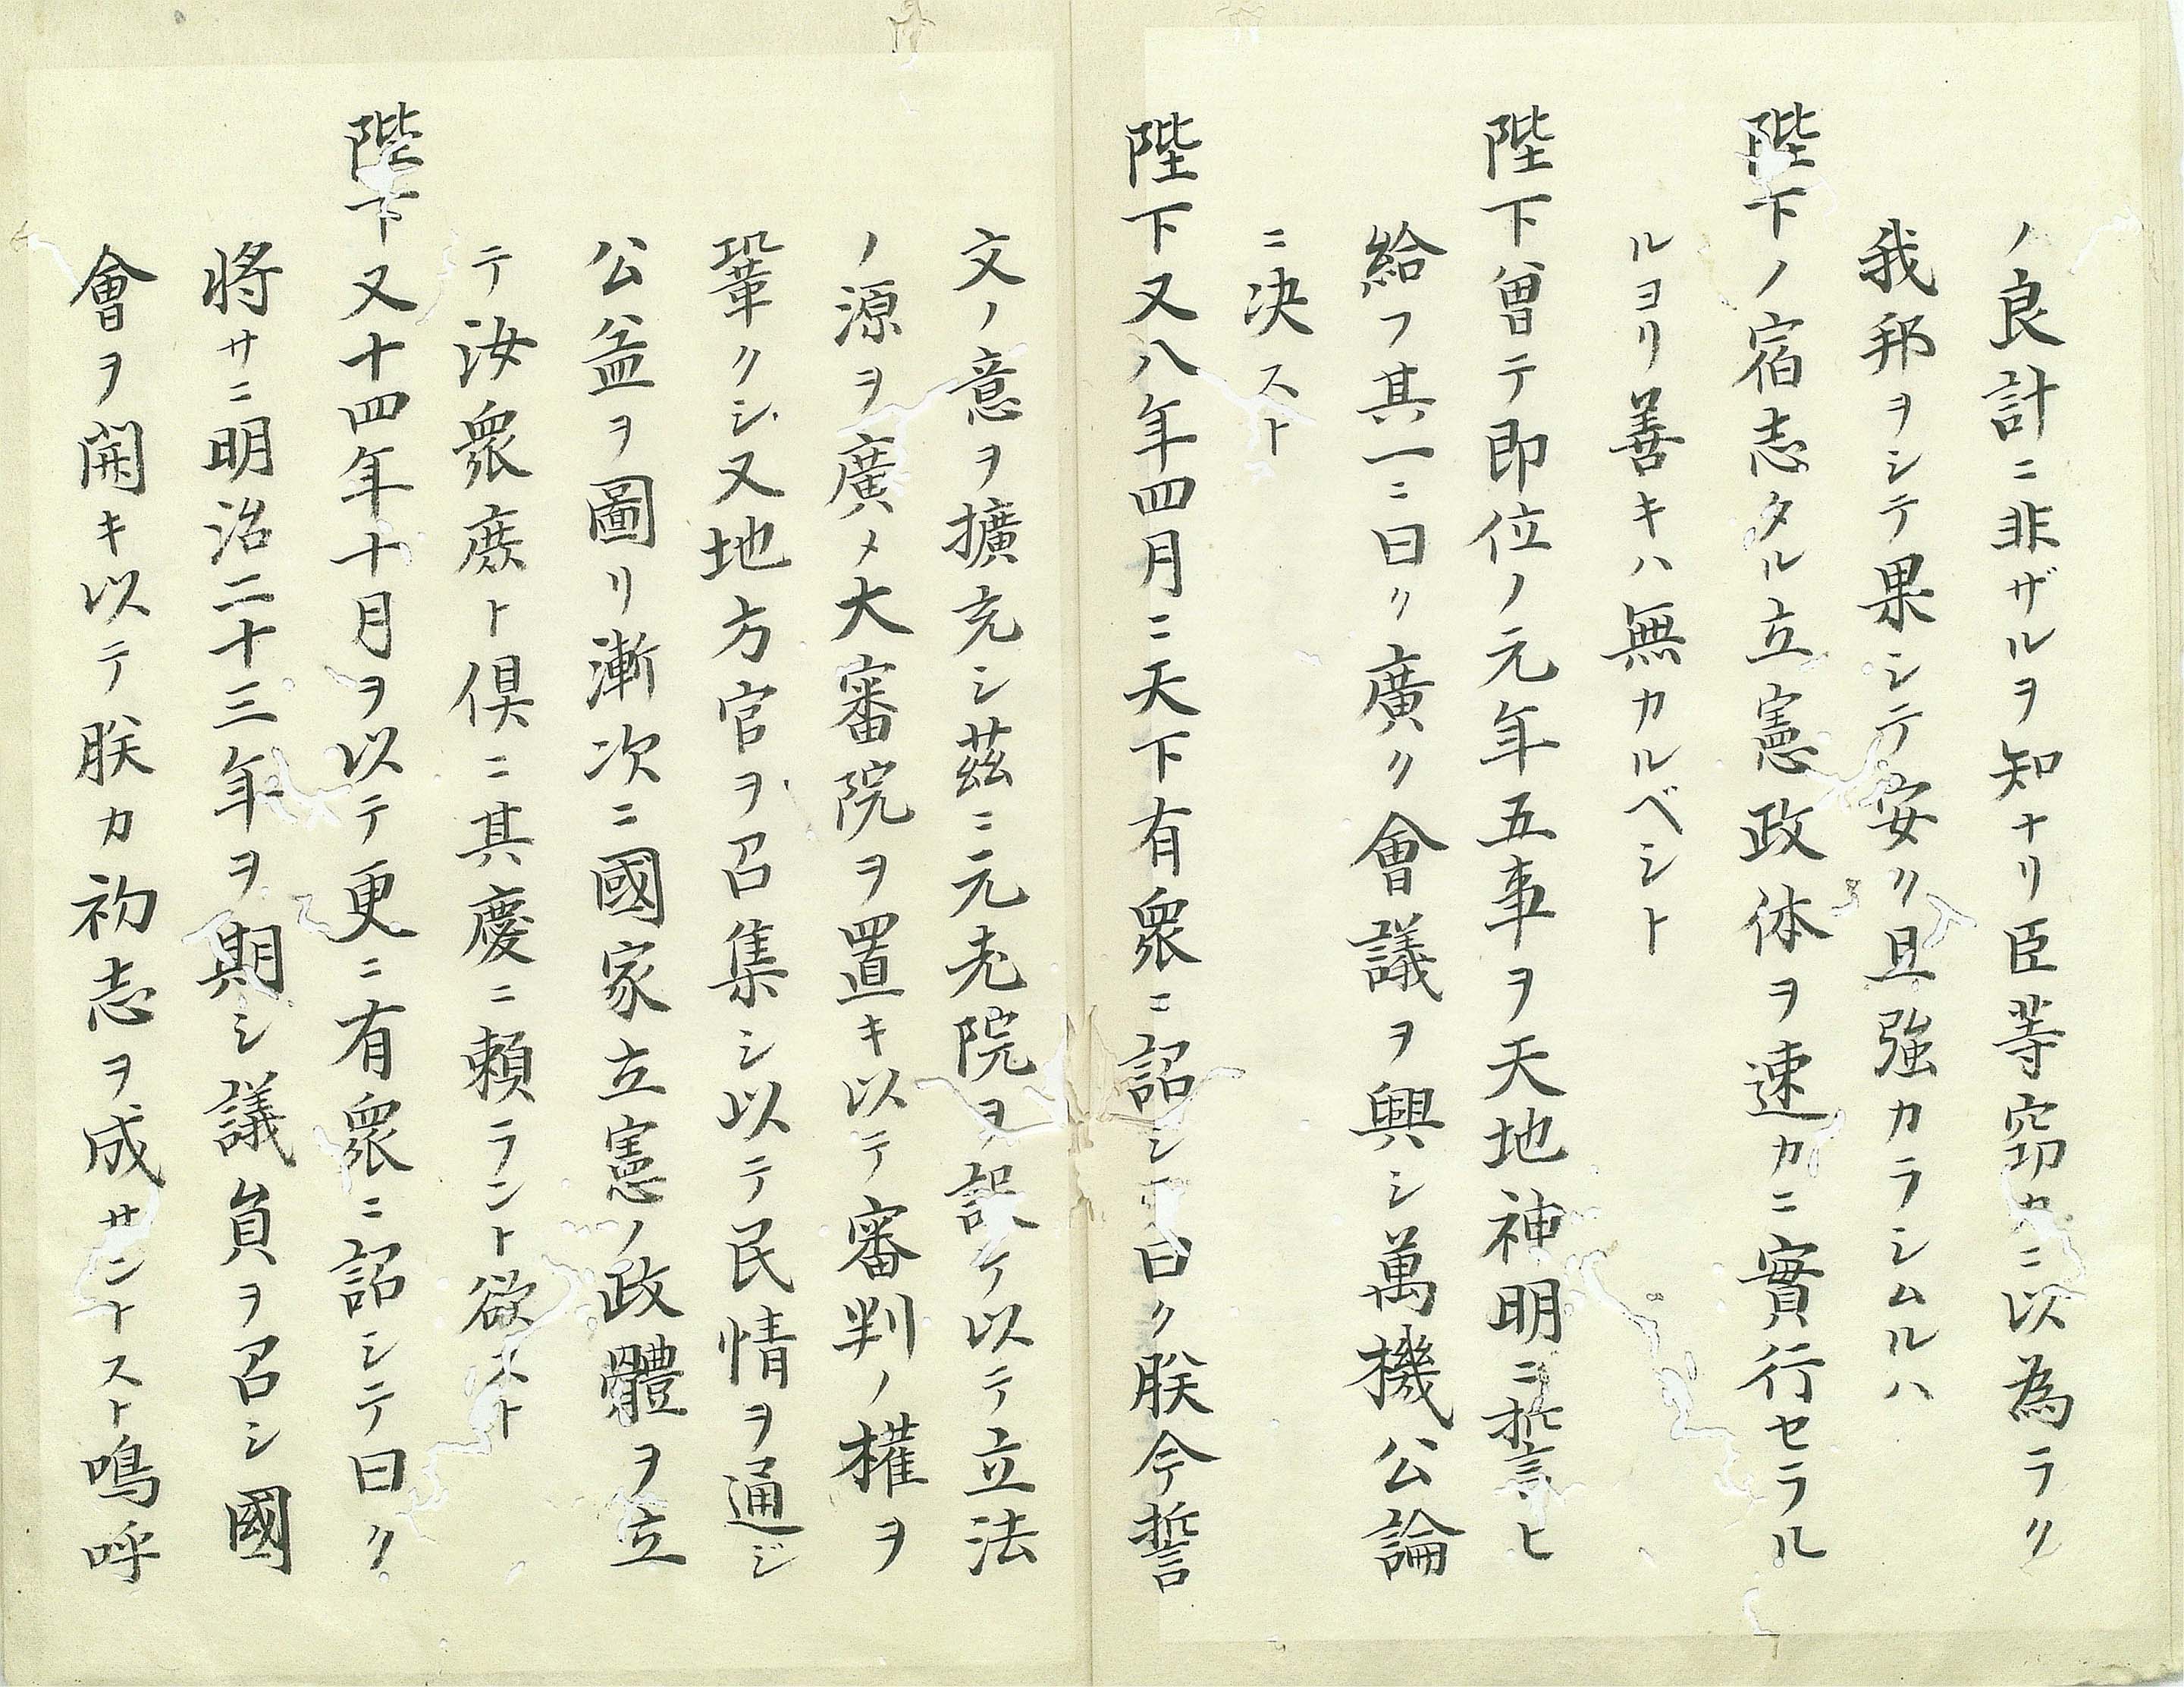 ノ良計ニ非ザルヲ知ナリ臣等窃カニ以為ラク
我邦ヲシテ果シテ安ク且強カラシムルハ
陛下ノ宿志タル立憲政体ヲ速カニ實行セラル
ルヨリ善キハ無カルベシト
陛下曾テ即位ノ元年五事ヲ天地神明ニ誓ヒ
給フ其一ニ曰ク廣ク會議ヲ興シ萬機公論
ニ決スト
陛下又八年四月ニ天下有衆ニ詔シテ曰ク朕今誓
文ノ意ヲ擴充シ茲ニ元老院ヲ設ケ以テ立法
ノ源ヲ廣メ大審院ヲ置キ以テ審判ノ權ヲ
鞏クシ又地方官ヲ召集シ以テ民情ヲ通ジ
公益ヲ圖リ漸次ニ國家立憲ノ政體ヲ立
テ汝衆庶ト倶ニ其慶ニ頼ラント欲スト
陛下又十四年十月ヲ以テ更ニ有衆ニ詔シテ曰ク
將サニ明治二十三年ヲ期シ議員ヲ召シ國
會ヲ開キ以テ朕カ初志ヲ成サントスト嗚呼